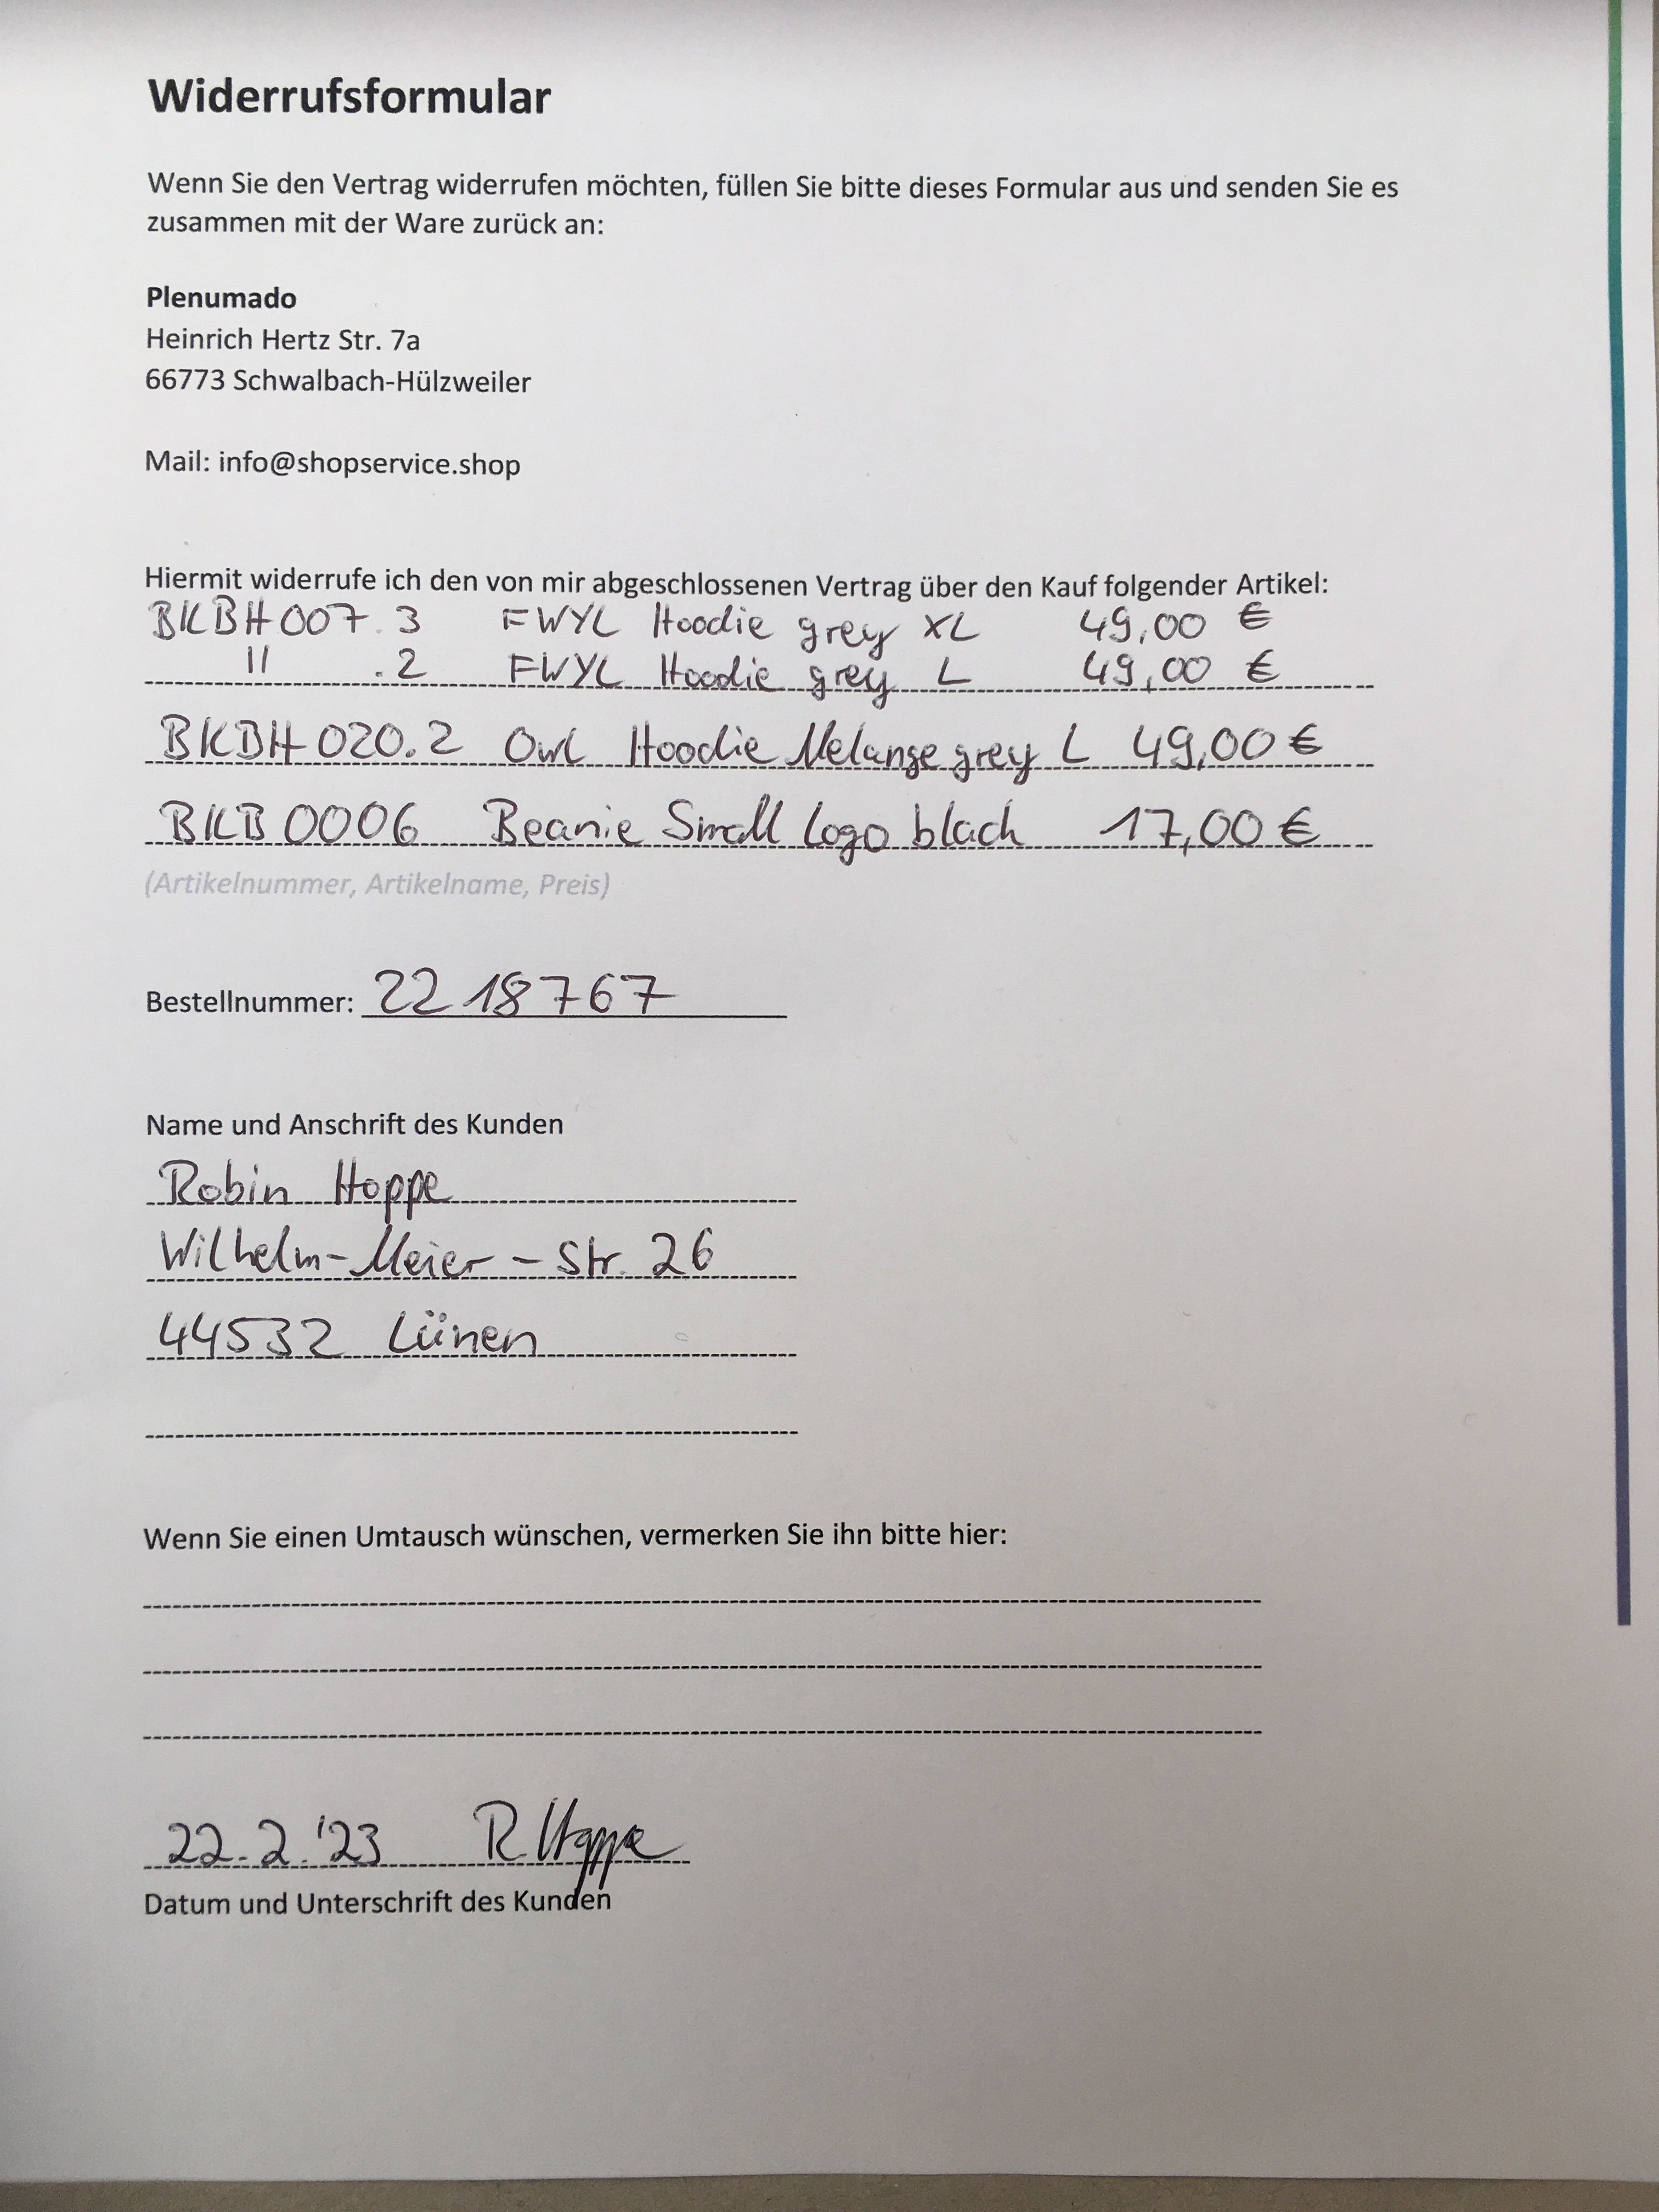 Widerrufsformular
Wenn Sie den Vertrag widerrufen möchten, füllen Sie bitte dieses Formular aus und senden Sie es
zusammen mit der Ware zurück an:
Plenumado
Heinrich Hertz Str. 7a
66773 Schwalbach-Hülzweiler
Mail: info@shopservice.shop
Hiermit widerrufe ich den von mir abgeschlossenen Vertrag über den Kauf folgender Artikel:
BKBH007.3 FWYL Hoodie grey XL 49,00 €
" .2 FWYL Hoodie grey L 49,00 €
BKBH020.2 Owl Hoodie Melange grey L 49,00 €
BKB0006 Beanie Small Logo black 17,00 €
(Artikelnummer, Artikelname, Preis)
Bestellnummer: 2218767
Name und Anschrift des Kunden
Robin Hoppe
Wilhelm-Meier-Str. 26
44532 Lünen
Wenn Sie einen Umtausch wünschen, vermerken Sie ihn bitte hier:
22.2.'23 R Hoppe
Datum und Unterschrift des Kunden